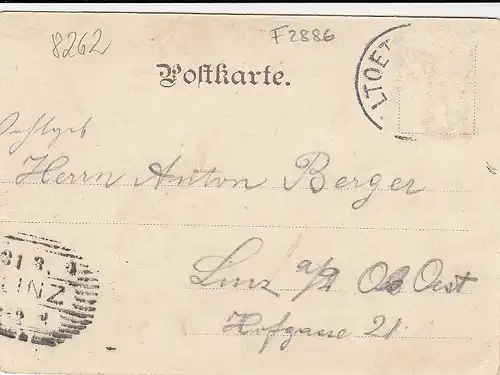 8262
F2886
LTOET
Postkarte.
Herrn Anton Berger
31 3.
LINZ
Linz a/D Ob Oest
Hofgasse 21.